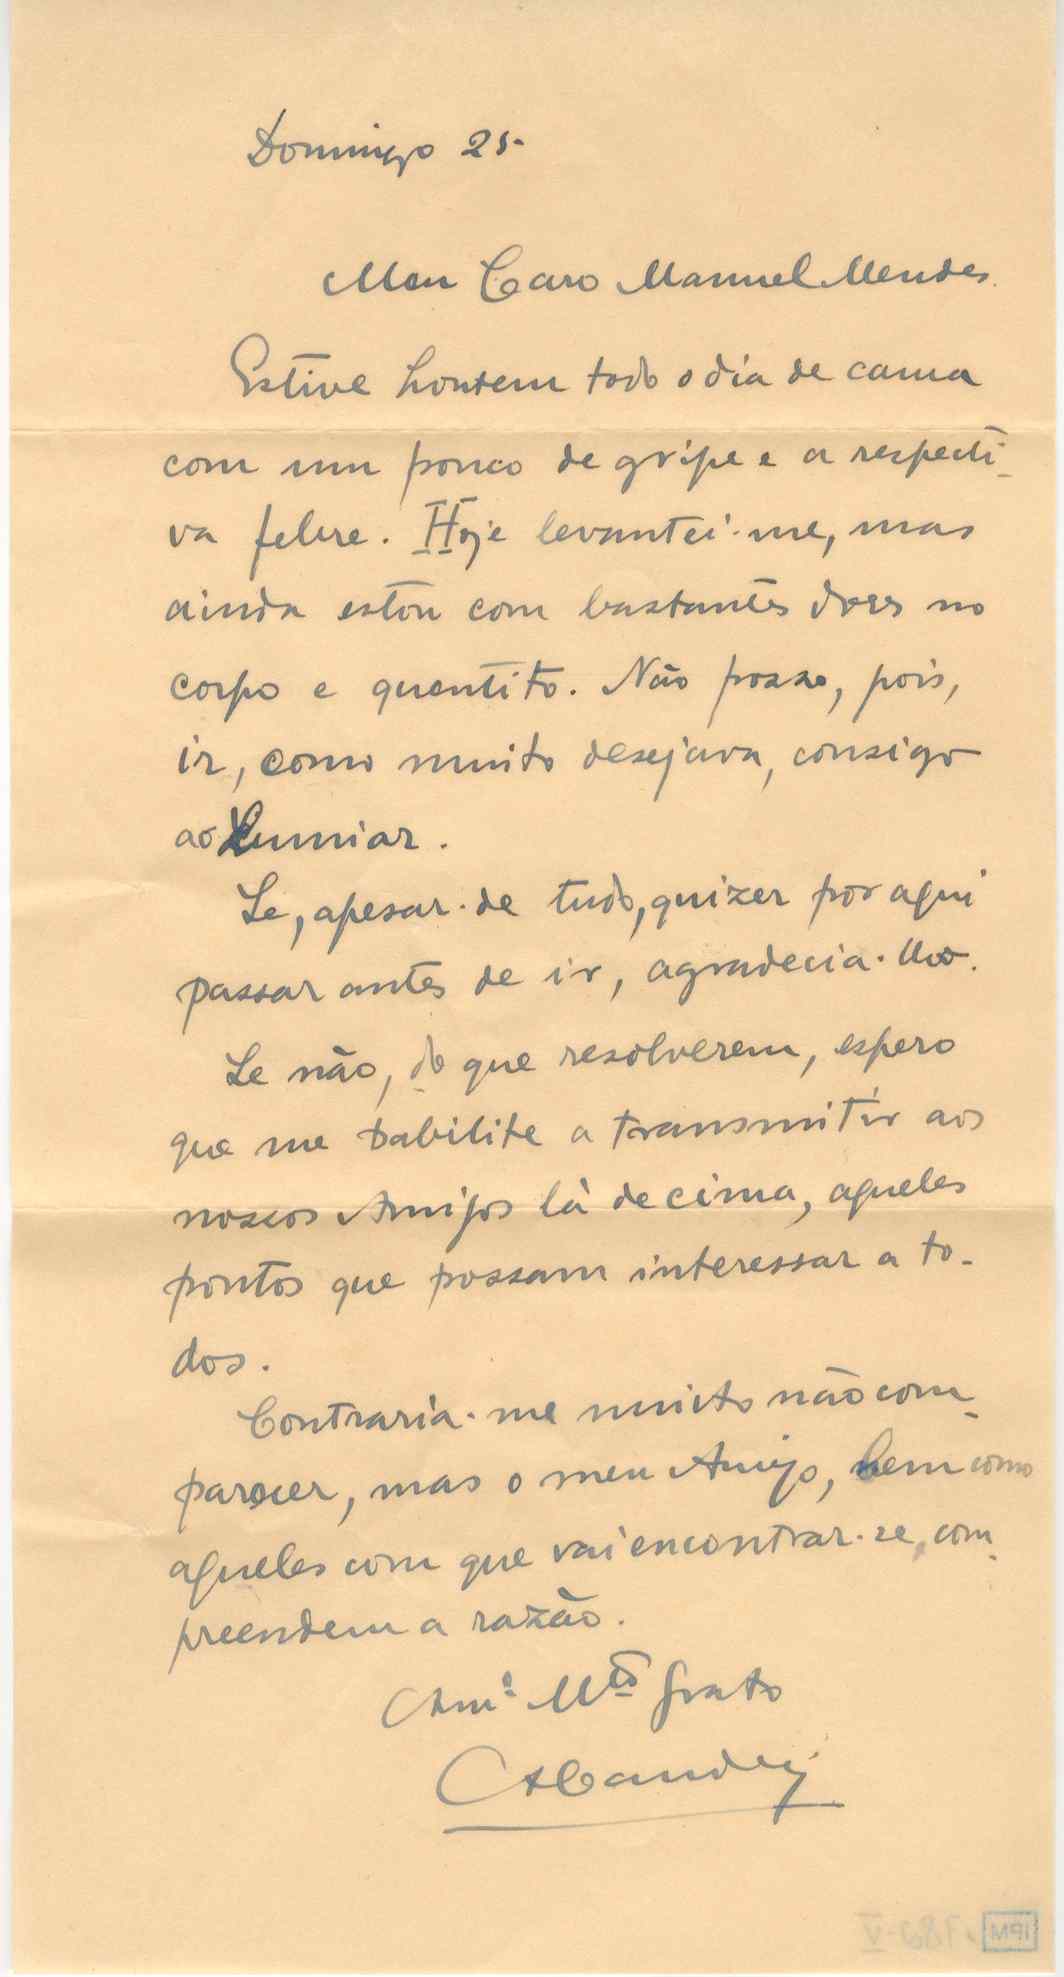 Domingo 25-
Meu Caro Manuel Mendes.
Estive hontem todo o dia de cama
com um pouco de gripe e a respecti-
va febre. Hoje levantei-me, mas
ainda estou com bastantes dores no
corpo e quentito. Não posso, pois,
ir, como muito desejava, consigo
ao Lumiar.
Se, apesar-de tudo, quizer por aqui
passar antes de ir, agradecia-lho.
Se não, do que resolverem, espero
que me habilite a transmitir aos
nossos Amigos lá de cima, aqueles
pontos que possam interessar a to-
dos.
Contraria-me muito não com-
parecer, mas o meu Amigo, bem como
aqueles com que vai encontrar-se, com-
preendem a razão.
Amº Mto Grato